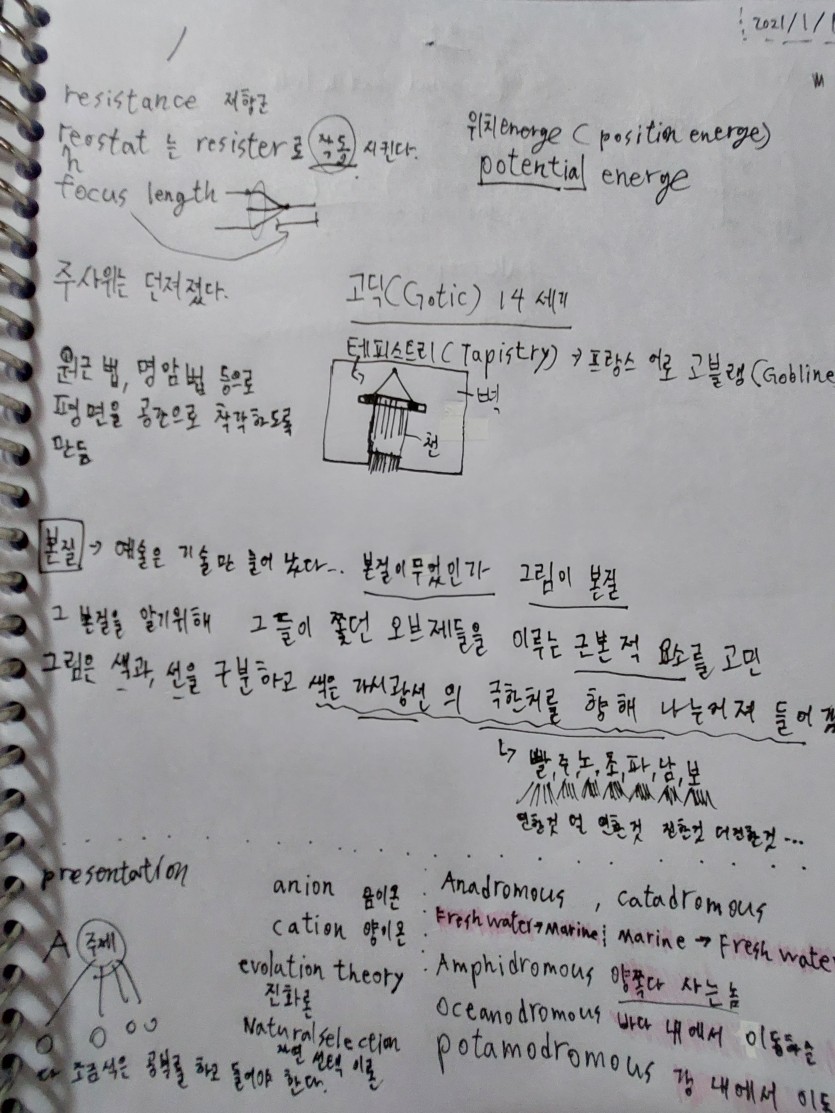 2021/1/1
M
resistance 저항근
reostat 는 resister로 작동 시킨다.
h
focus length
위치energe ( position energe)
potential energe
주사위는 던져졌다.
고딕(Gotic) 14 세기
테피스트리(Tapistry) → 프랑스 어로 고블랭(Gobline
벽
천
원근법, 명암법 등으로
평면을 공간으로 착각하도록
만듦
본질 → 예술은 기술만 늘어 났다... 본질이 무엇인가 그림이 본질
그 본질을 알기위해 그들이 쫓던 오브제들을 이루는 근본적 요소를 고민
그림은 색과, 선을 구분하고 색은 가시광선의 극한치를 향해 나누어져 들어감
빨,주,노,초,파,남,보
연한것 덜 연한것 진한것 더진한것 ...
presentation
A 주제
다 조금씩은 공부를 하고 들어야 한다.
anion 음이온
cation 양이온
evolation theory
진화론
Natural selection
자연 선택 이론
Anadromous , catadromous
Fresh water → Marine ; Marine → Fresh water
Amphidromous 양쪽다 사는 놈
Oceanodromous 바다 내에서 이동
potamodromous 강 내에서 이도